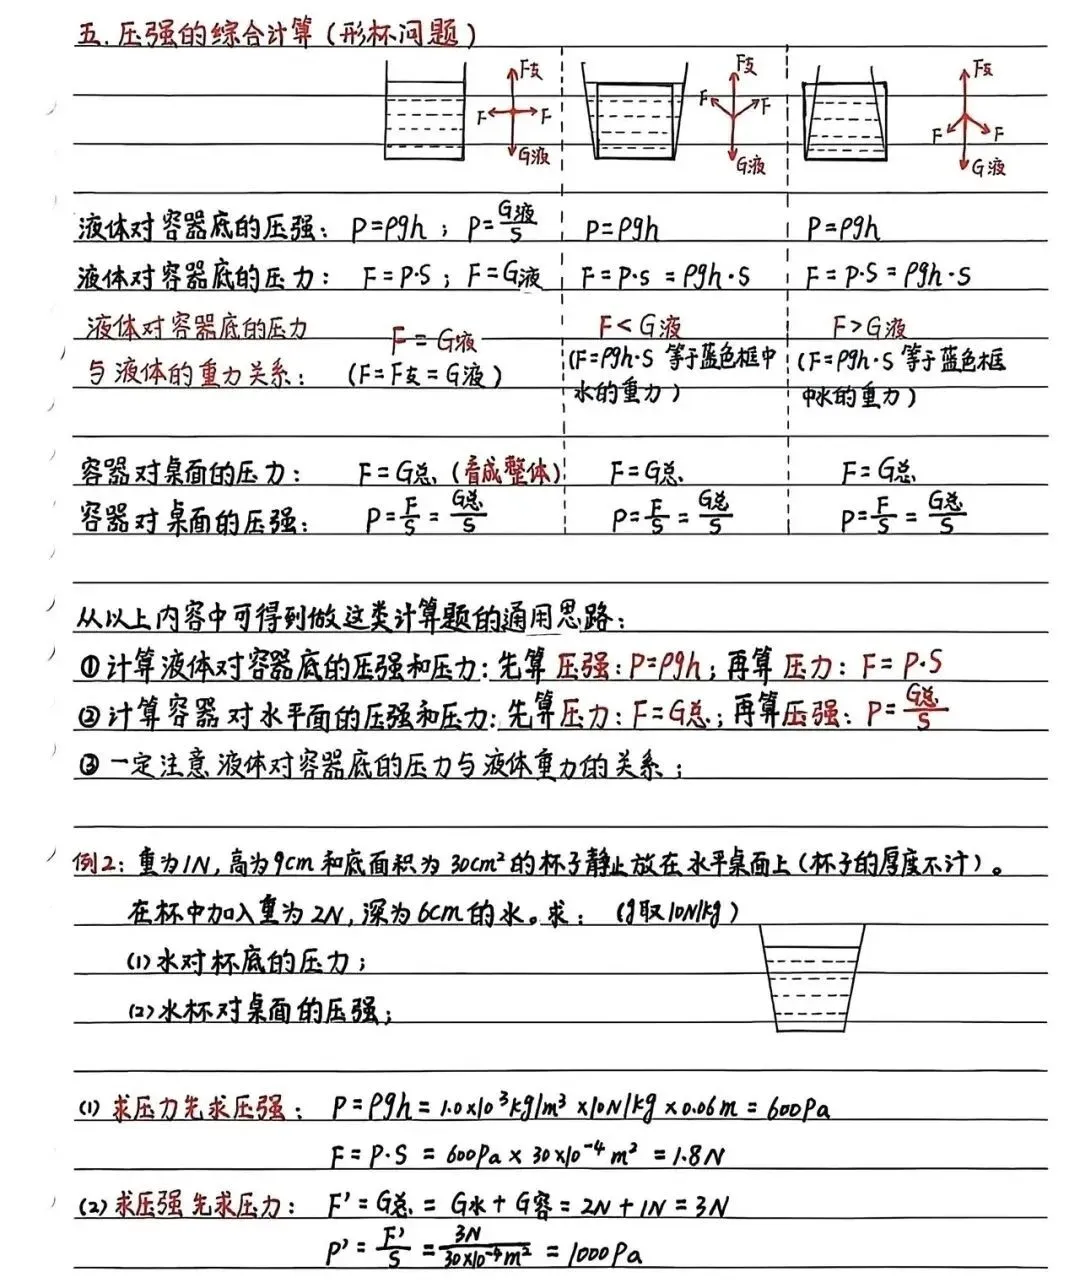 五.压强的综合计算(形杯问题)
F支 F支 F支
F F F F F F
G液 G液 G液
液体对容器底的压强: P=ρgh ; P=G液/S P=ρgh P=ρgh
液体对容器底的压力: F=P·S ; F=G液 F=P·S=ρgh·S F=P·S=ρgh·S
液体对容器底的压力 F=G液 F<G液 F>G液
与液体的重力关系: (F=F支=G液) (F=ρgh·S 等于蓝色框中 (F=ρgh·S 等于蓝色框
水的重力) 中水的重力)
容器对桌面的压力: F=G总 (看成整体) F=G总 F=G总
容器对桌面的压强: P=F/S=G总/S P=F/S=G总/S P=F/S=G总/S
从以上内容中可得到做这类计算题的通用思路:
①计算液体对容器底的压强和压力:先算压强:P=ρgh;再算压力:F=P·S
②计算容器对水平面的压强和压力:先算压力:F=G总;再算压强:P=G总/S
③一定注意液体对容器底的压力与液体重力的关系;
例2:重为1N,高为9cm和底面积为30cm²的杯子静止放在水平桌面上(杯子的厚度不计)。
在杯中加入重为2N,深为6cm的水。求:(g取10N/kg)
(1)水对杯底的压力;
(2)水杯对桌面的压强;
(1)求压力先求压强: P=ρgh=1.0×10³kg/m³×10N/kg×0.06m=600Pa
F=P·S=600Pa×30×10⁻⁴m²=1.8N
(2)求压强先求压力: F'=G总=G水+G容=2N+1N=3N
P'=F'/S=3N/30×10⁻⁴m²=1000Pa